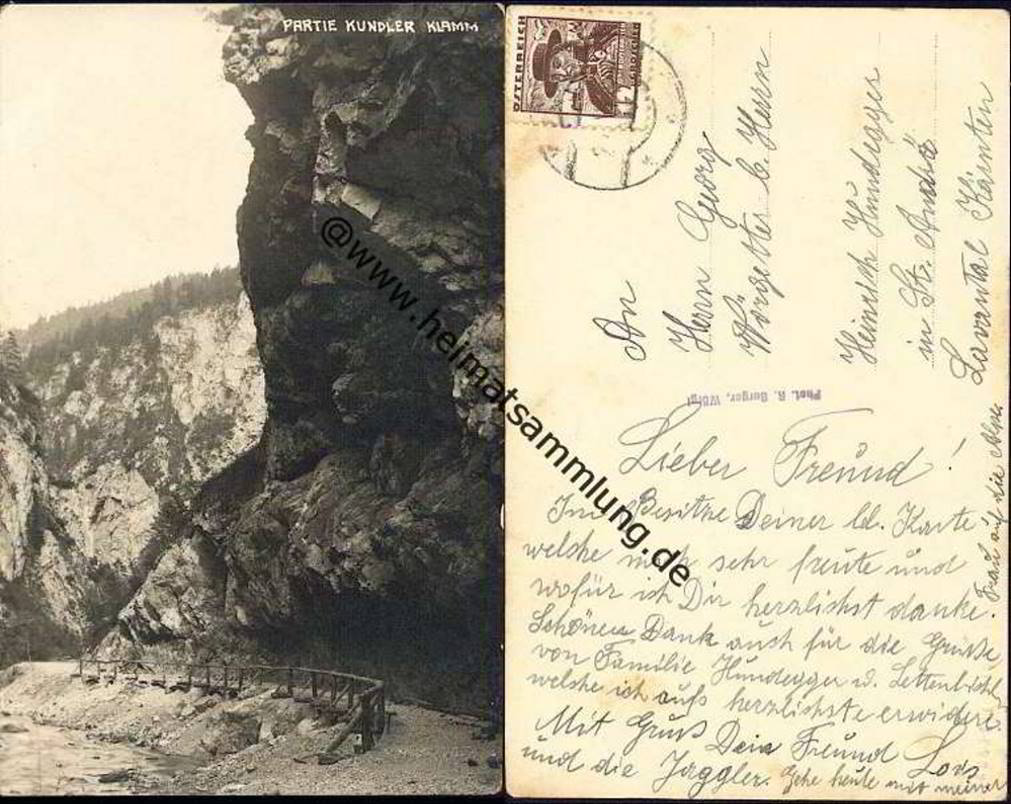 PARTIE KUNDLER KLAMM
@www.heimatsammlung.de
ÖSTERREICH
An
Herrn Georg
Vorgetter b. Herrn
Heinrich Hundegger
in St. Andrä
Lavantal Kärnten
Phot. R. Berger, Wörgl
Lieber Freund!
Im Besitze Deiner lb. Karte
welche mich sehr freute und
wofür ich Dir herzlichst danke.
Schönen Dank auch für die Grüße
von Familie Hundegger u.
welche ich aufs herzlichste erwidere.
Mit Gruß Dein Freund Lois
und die Jaggler. Gehe heute mit meiner
Frau auf die Alm